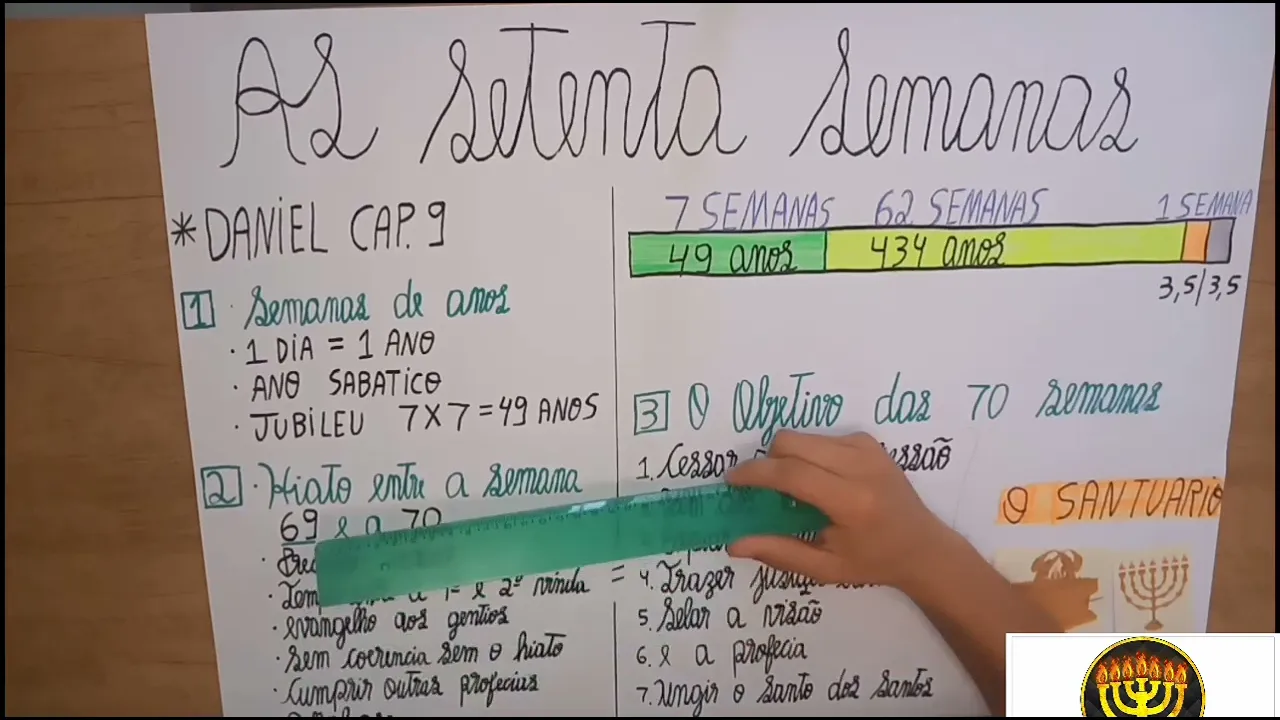 AS setenta semanas
* DANIEL CAP. 9
1 · Semanas de anos
· 1 DIA = 1 ANO
· ANO SABATICO
· JUBILEU 7X7=49 ANOS
2 · Hiato entre a semana
69 e a 70
e 2º vinda =
· evangelho aos gentios
· sem coerencia sem o hiato
· Cumprir outras profecias
7 SEMANAS 62 SEMANAS 1 SEMANA
49 anos 434 anos
3,5/3,5
3 O Objetivo das 70 semanas
1. Cessar
4. Trazer justiça
5. Selar a visão
6. e a profecia
7. Ungir o santo dos santos
O SANTUARIO